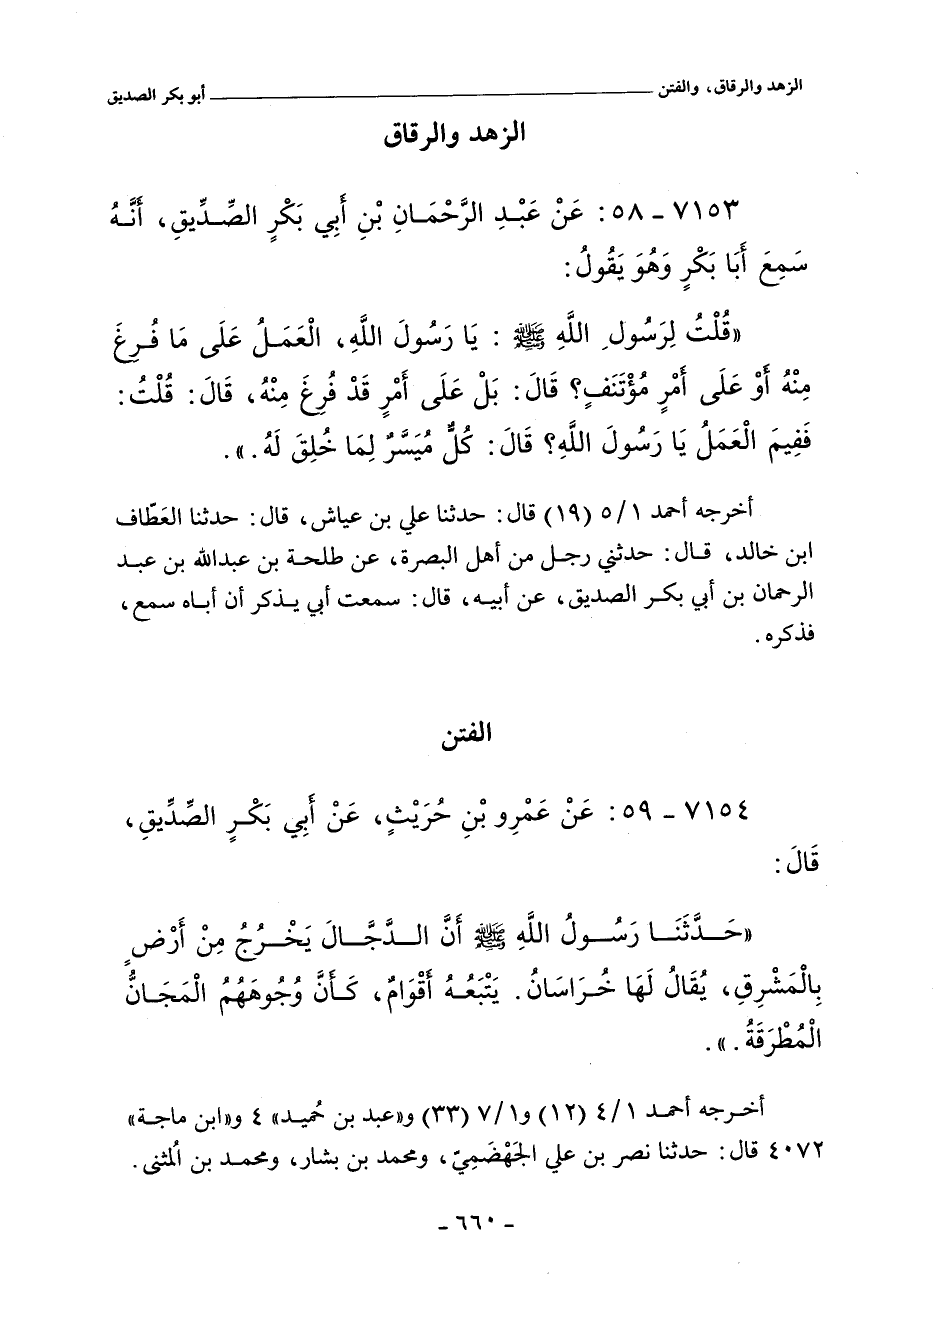 الزهد والرقاق، والفتن ـــــــــــــــــــــ أبو بكر الصديق
الزهد والرقاق
٧١٥٣ - ٥٨: عَنْ عَبْدِ الرَّحْمَانِ بْنِ أَبِي بَكْرٍ الصِّدِّيقِ، أَنَّهُ
سَمِعَ أَبَا بَكْرٍ وَهُوَ يَقُولُ:
«قُلْتُ لِرَسُولِ اللَّهِ ﷺ : يَا رَسُولَ اللَّهِ، الْعَمَلُ عَلَى مَا فُرِغَ
مِنْهُ أَوْ عَلَى أَمْرٍ مُؤْتَنَفٍ؟ قَالَ: بَلْ عَلَى أَمْرٍ قَدْ فُرِغَ مِنْهُ، قَالَ: قُلْتُ:
فَفِيمَ الْعَمَلُ يَا رَسُولَ اللَّهِ؟ قَالَ: كُلٌّ مُيَسَّرٌ لِمَا خُلِقَ لَهُ.».
أخرجه أحمد ٥/١ (١٩) قال: حدثنا علي بن عياش، قال: حدثنا العَطّاف
ابن خالد، قال: حدثني رجل من أهل البصرة، عن طلحة بن عبدالله بن عبد
الرحمان بن أبي بكر الصديق، عن أبيه، قال: سمعت أبي يذكر أن أباه سمع،
فذكره.
الفتن
٧١٥٤ - ٥٩: عَنْ عَمْرِو بْنِ حُرَيْثٍ، عَنْ أَبِي بَكْرٍ الصِّدِّيقِ،
قَالَ:
«حَدَّثَنَا رَسُولُ اللَّهِ ﷺ أَنَّ الدَّجَّالَ يَخْرُجُ مِنْ أَرْضٍ
بِالْمَشْرِقِ، يُقَالُ لَهَا خُرَاسَانُ. يَتْبَعُهُ أَقْوَامٌ، كَأَنَّ وُجُوهَهُمُ الْمَجَانُّ
الْمُطْرَقَةُ.».
أخرجه أحمد ٤/١ (١٢) و٧/١ (٣٣) و«عبد بن حُميد» ٤ و«ابن ماجة»
٤٠٧٢ قال: حدثنا نصر بن علي الجَهْضَمِيّ، ومحمد بن بشار، ومحمد بن اُلمثنى.
- ٦٦٠ -